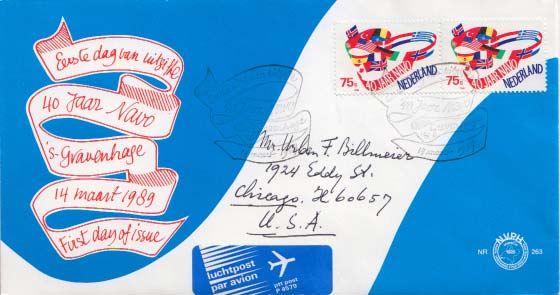 Eerste dag van uitgifte
40 Jaar Navo
's-Gravenhage
14 maart 1989
First day of issue
75c 40 JAAR NAVO NEDERLAND
75c 40 JAAR NAVO NEDERLAND
40 Jaar Navo
Mr. Urban F. Billmeier
1924 Eddy St.
Chicago, Il 60657
U.S.A.
luchtpost
par avion
ptt post
P 4579
NVPH
NR 263